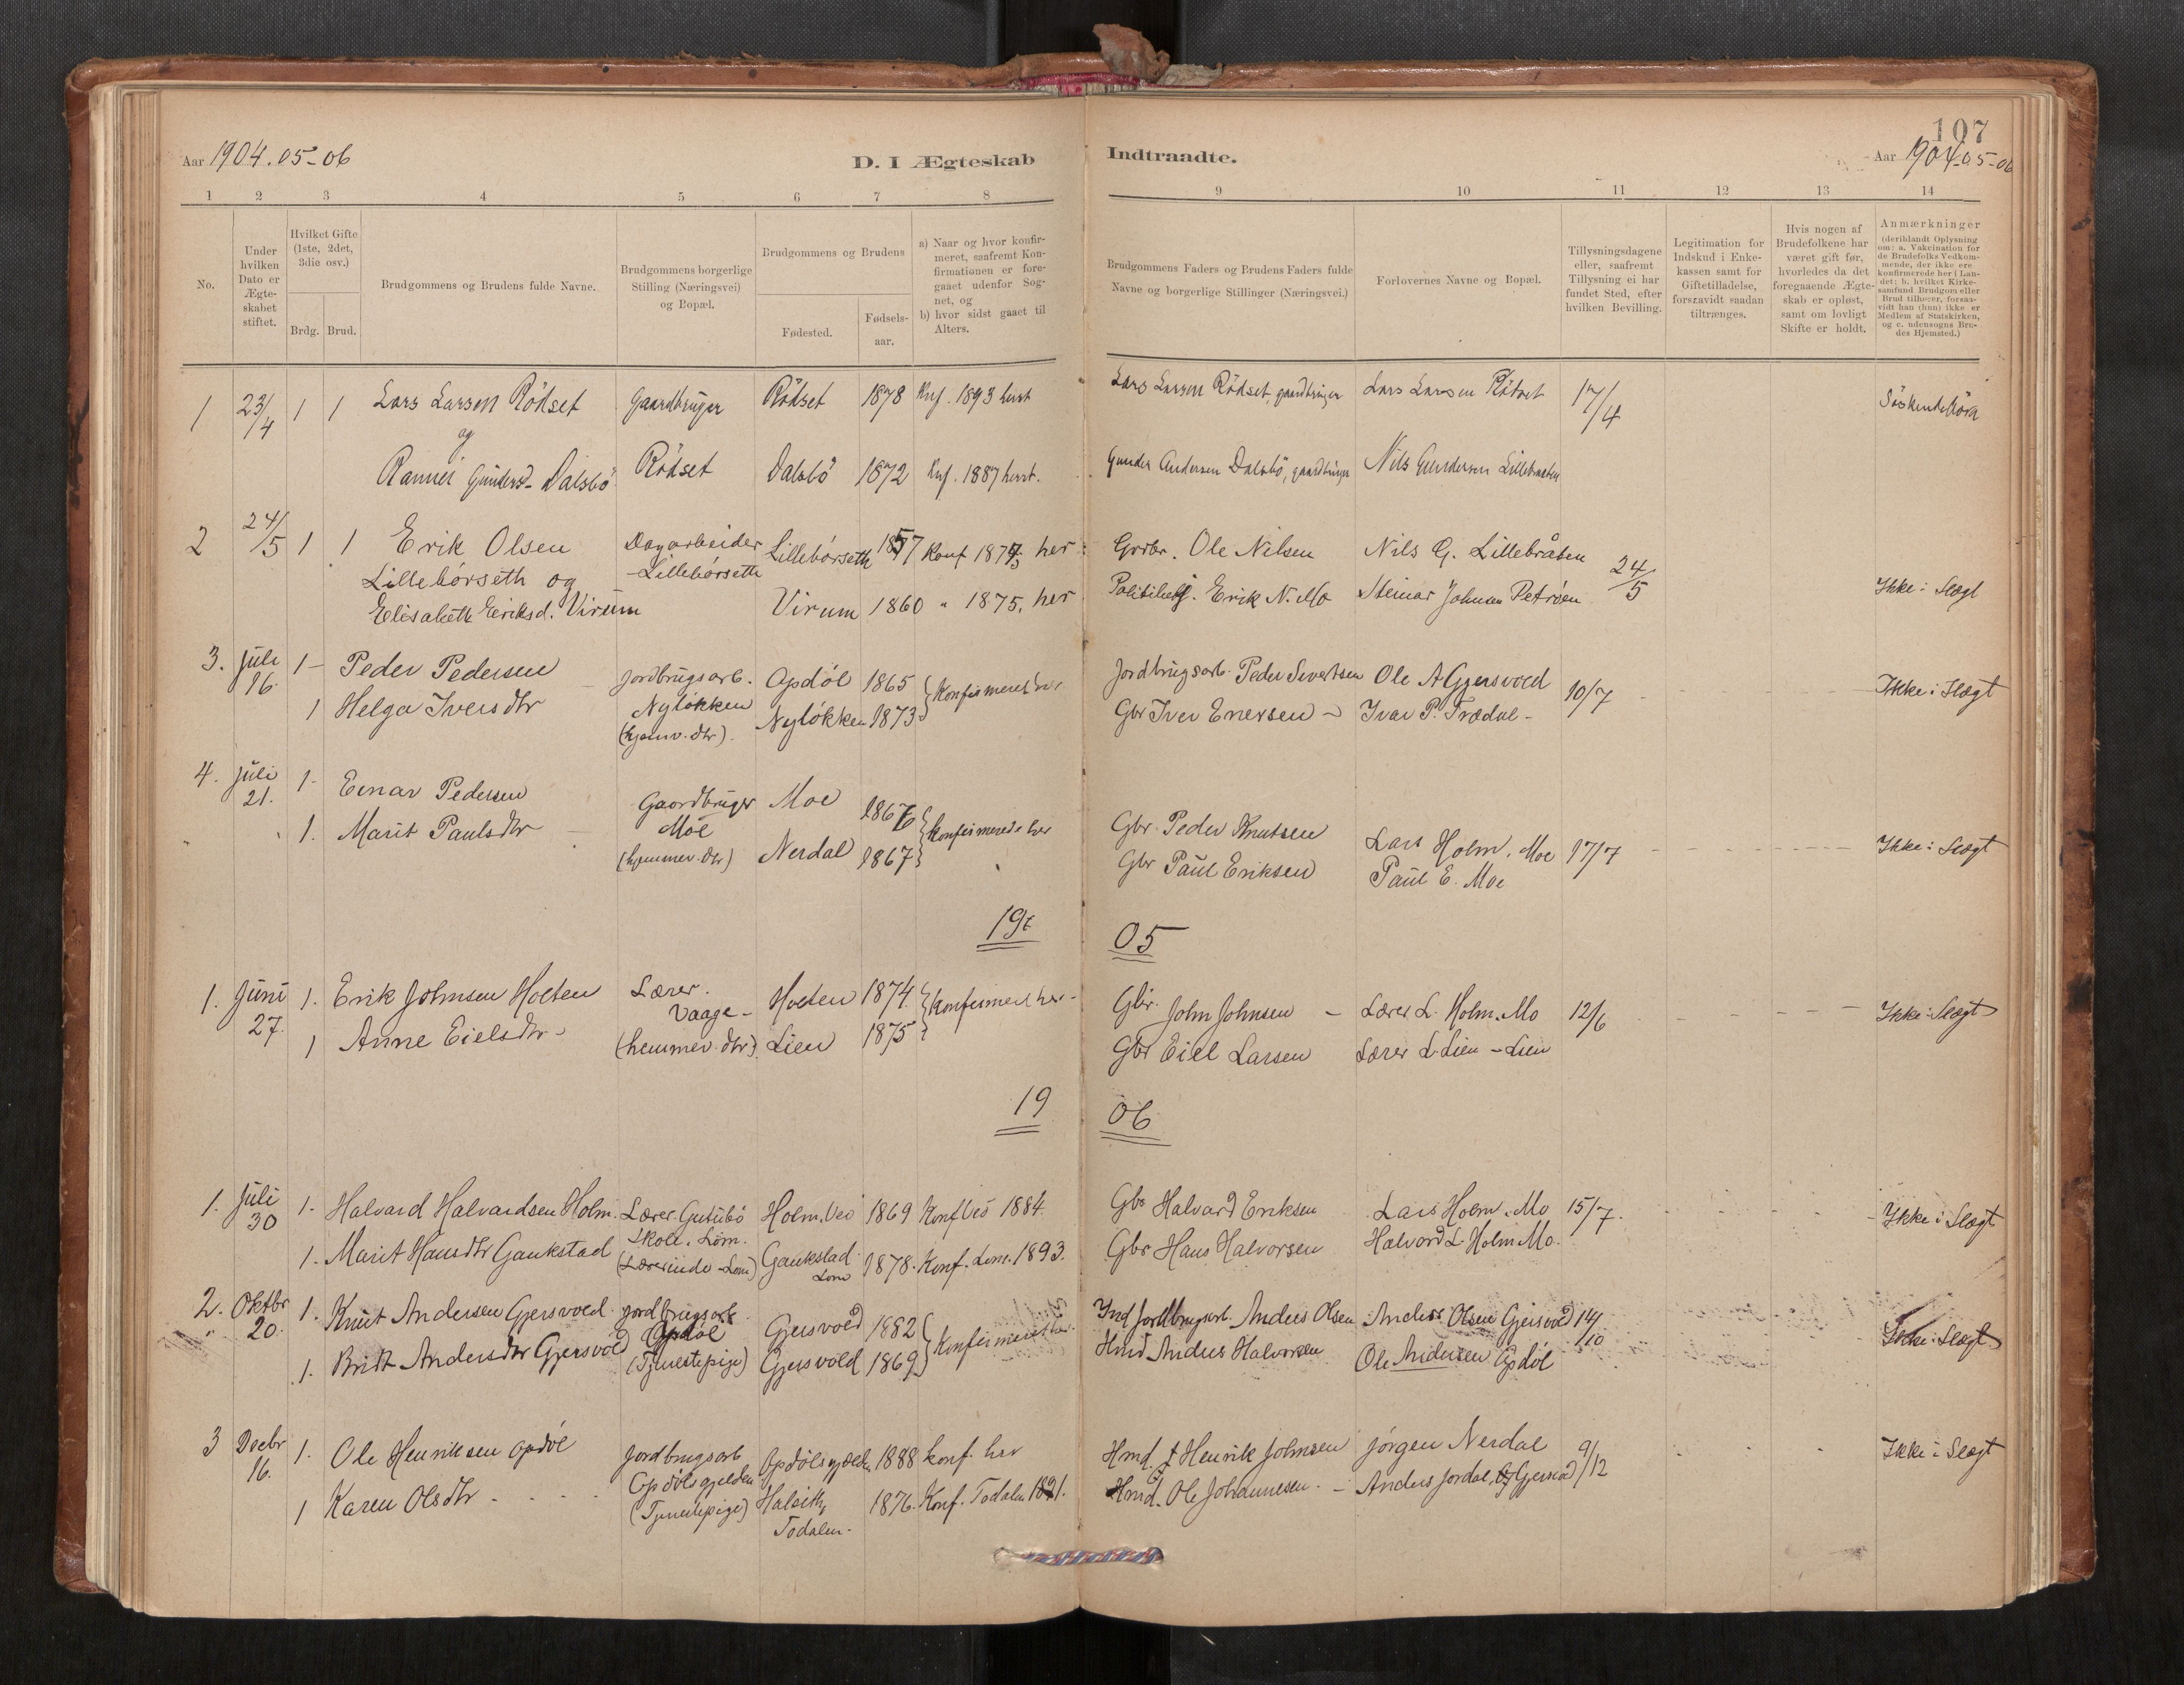 107
Aar 1904.05-06
D. I Ægteskab
Indtraadte.
Aar 1904-05-06
1 2 3 4 5 6 7 8
9 10 11 12 13 14
No.
Under hvilken Dato er Ægte-skabet stiftet.
Hvilket Gifte (1ste, 2det, 3die osv.)
Brdg. Brud.
Brudgommens og Brudens fulde Navne.
Brudgommens borgerlige Stilling (Næringsvei) og Bopæl.
Brudgommens og Brudens
Fødested.
Fødsels-aar.
a) Naar og hvor konfir-meret, saafremt Kon-firmationen er fore-gaaet udenfor Sog-net, og
b) hvor sidst gaaet til Alters.
Brudgommens Faders og Brudens Faders fulde Navne og borgerlige Stillinger (Næringsvei.)
Forlovernes Navne og Bopæl.
Tillysningsdagene eller, saafremt Tillysning ei har fundet Sted, efter hvilken Bevilling.
Legitimation for Indskud i Enke-kassen samt for Giftetilladelse, forsaavidt saadan tiltrænges.
Hvis nogen af Brudefolkene har været gift før, hvorledes da det foregaaende Ægte-skab er opløst, samt om lovligt Skifte er holdt.
Anmærkninger (deriblandt Oplysning om: a. Vakcination for de Brudefolks Vedkom-mende, der ikke ere konfirmerede her i Lan-det; b. hvilket Kirke-samfund Brudgom eller Brud tilhører, forsaa-vidt han (hun) ikke er Medlem af Statskirken, og c. udensogns Bru-des Hjemsted.)
1 23/4 1 1 Lars Larsen Rödset Gaardbruger Rödset 1878 Knf. 1893 herst Lars Larsen Rödset, gaardbruger Lars Larsen Rödset 17/4
og
Gunders- Dalsbö Rödset Dalsbö 1872 Knf. 1887 herst. Gunder Andersen Dalsbö, gaardbruger Nils Gundersen Lillebraaten
2 24/5 1 1 Erik Olsen Dagarbeider Lillebórseth 1857 Konf 1873 her Grdbr. Ole Nilsen Nils G. Lillebråten 24/5
Lillebórseth og -Lillebórseth
Elisabeth Eriksd. Virum Virum 1860 " 1875, her Erik N. Mo Steinar Johnsen Petróen Ikke i Slægt
3. Juli 16. 1- Peder Pedersen Jordbrugsarb. Opdól 1865 Konfirmeret her Jordbrugsarb. Peder Sivertsen Ole A Gjersvold 10/7 Ikke i Slægt
1 Helga Ivers dtr Nylókken (hjemv. dtr). Nylókken 1873 Gbr Iver Enersen - Ivar P. Trædal -
4. Juli 21. 1- Einar Pedersen Gaardbruger Moe 1867 Konfirmerede her Gbr. Peder Knutsen Lars Holm, Moe 17/7 Ikke i Slægt
1. Marit Pauls dtr Moe (hjemmev. dtr) Nerdal 1867 Gbr Paul Eriksen Paul E. Moe
19 05
1. Juni 27. 1. Erik Johnsen Holten Lærer. Vaage - Holten 1874. Konfirmeret her - Gbr. John Johnsen - Lærer L. Holm. Mo 12/6 Ikke i Slægt
1 Anne Eielsdtr - (hemmev. dtr). Lien 1875 Gbr Eiel Larsen Lærer L. Lien - Lien
19 06
1. Juli 30 1- Halvard Halvardsen Holm. Lærer. Holm. 1869 Konf 1884. Gbr Halvard Eriksen Lars Holm. Mo 15/7. Ikke i Slægt
Skole. Lom.
1. Marit Hansdtr Gaukstad (Lærerinde - Lom) Gaukstad Lom 1878. Konf. Lom. 1893. Gbr Hans Halvorsen Halvard L. Holm Mo.
2. Oktbr 20. 1. Knut Andersen Gjersvold jordbrugsarb Opdól Gjersvold 1882 Konfirmeret her Ind Jordbrugsarb. Anders Olsen Anders Olsen Gjersvold 14/10 Ikke i Slægt
1. Brit Andersdtr Gjersvold (Tjenestepige) Gjersvold 1869 Hmd Anders Halvorsen Ole Andersen Opdól
3 Decbr 16. 1. Ole Henriksen Opdól Jordbrugsarb Opdólsgjelden 1888 konf. her Hmd. † Henrik Johnsen Jórgen Nerdal 9/12 Ikke i Slægt
1 Karen Olsdtr - Opdólsgjelden (Tjenestepige) Todalen. 1876. Konf. Todalen 1891. Hmd. Ole Johannesen. - Anders Jordal, Gjersvold